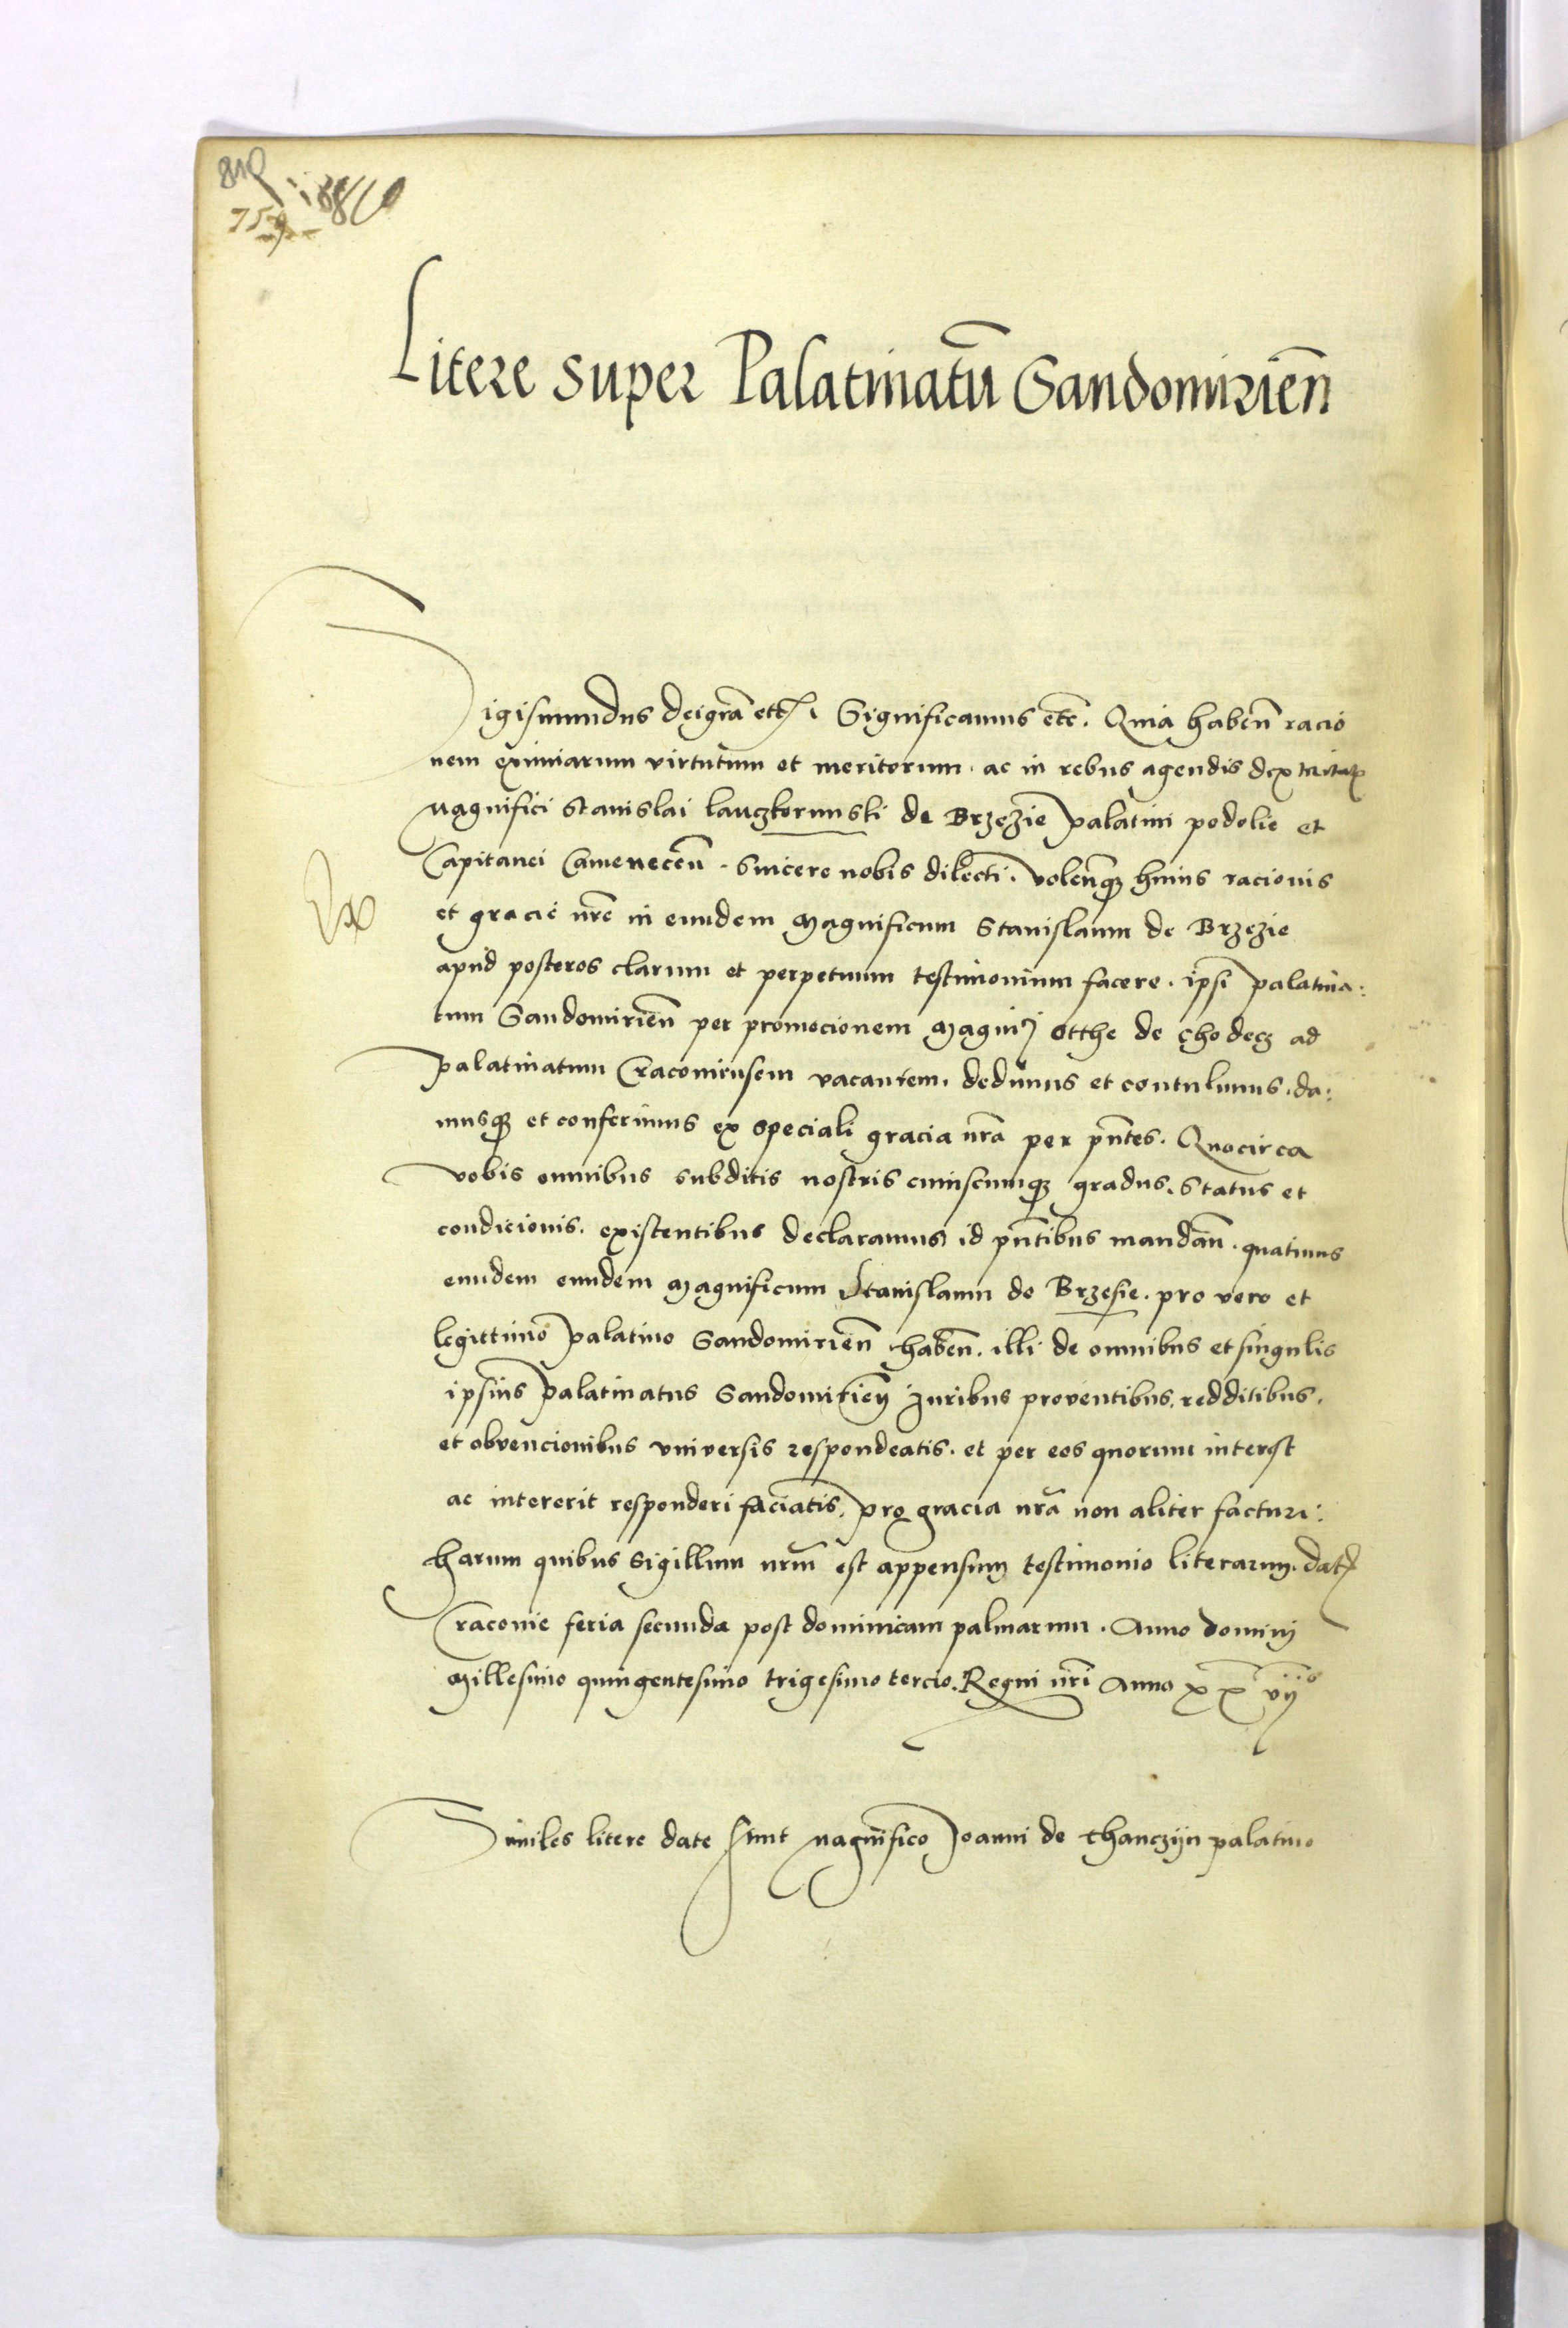 759
Litere super Palatinatū Sandomirień
Sigismundus dei grā etc. Significamus etc. Quia habeñ racio
nem eximiarum virtutum et meritorum. ac in rebus agendis dexteritat
Magnifici Stanislai lanczkorunski de Brzezie palatini podolie et
Capitanei Cameneceñ. Sincere nobis dilecti. Volenq huius racionis
et gracie nr̄e in eundem Magnificum Stanislaum de Brzezie
apud posteros clarum et perpetuum testimonium facere. ipsi palatina:
tum Sandomirieñ per promocionem Magnici Otthe de Chodecz ad
palatinatum Cracouiensem vacantem. dedimus et contulimus. da:
musq et conferimus ex speciali gracia nr̄a per pn̄tes. Quocirca
vobis omnibus subditis nostris cuiuscumq gradus. Status et
condicionis. existentibus declaramus id pn̄tibus mandañ. quatinus
eundem eundem Magnificum Stanislaum de Brzesie. pro vero et
legittimo palatino Sandomirieñ habeñ. illi de omnibus et singulis
ipsius palatinatus Sandomirieñ Juribus proventibus. redditibus.
et obvencionibus vniversis respondeatis. et per eos quorum interest
ac intererit responderi faciatis. pro gracia nr̄a non aliter facturi:
harum quibus Sigillum nr̄m est appensum testimonio literarum. dat
Cracouie feria secunda post dominicam palmarum. Anno domini
Millesimo quingentesimo trigesimo tercio. Regni nr̄i Anno xx vijo
Similes litere date sunt Magnifico Joanni de thanczijn palatino